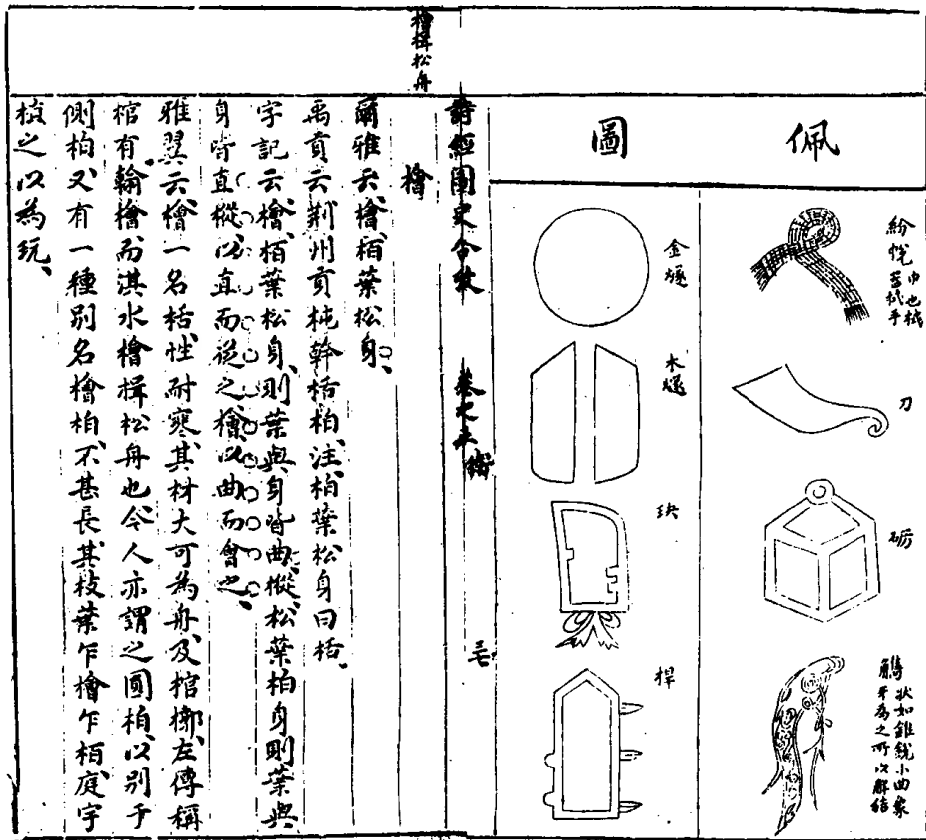 佩
圖
紛帨 巾也拭
器拭手
刀
砺
觿 狀如錐銳小曲象
牙爲之所以解結
金燧
木燧
玦
捍
檜楫松舟
詩經圖史合攷 卷之五衛 三七
檜
爾雅云檜柏葉松身
禹貢云荆州貢杶幹栝柏注柏葉松身曰栝
字記云檜柏葉松身則葉與身皆曲樅松葉柏身則葉與
身皆直樅以直而從之檜以曲而會之
雅翼云檜一名栝性耐寒其材大可為舟及棺槨左傳稱
棺有翰檜而淇水檜楫松舟也今人亦謂之圓柏以別于
側柏又有一種別名檜柏不甚長其枝葉乍檜乍柏庭宇
植之以為玩